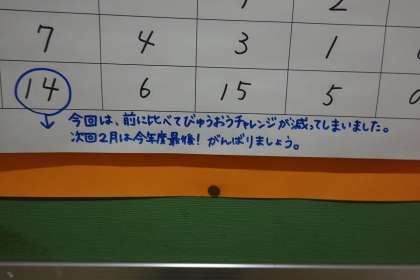 7 4 3 1
14 6 15 5
今回は、前に比べてびゅうおうチャレンジが減ってしまいました。
次回2月は今年度最後！がんばりましょう。